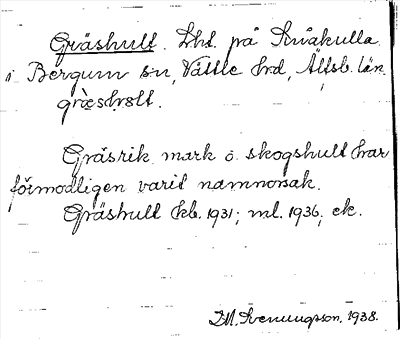 Gräshult. Lht. på Knåkulla
i Bergum sn, Vättle hrd, Älfsb. län.
græsḥølt.
Gräsrik mark o. skogshult har
förmodligen varit namnorsak.
Gräshult kb. 1931; ml. 1936, ek.
I.M. Svenungsson, 1938.